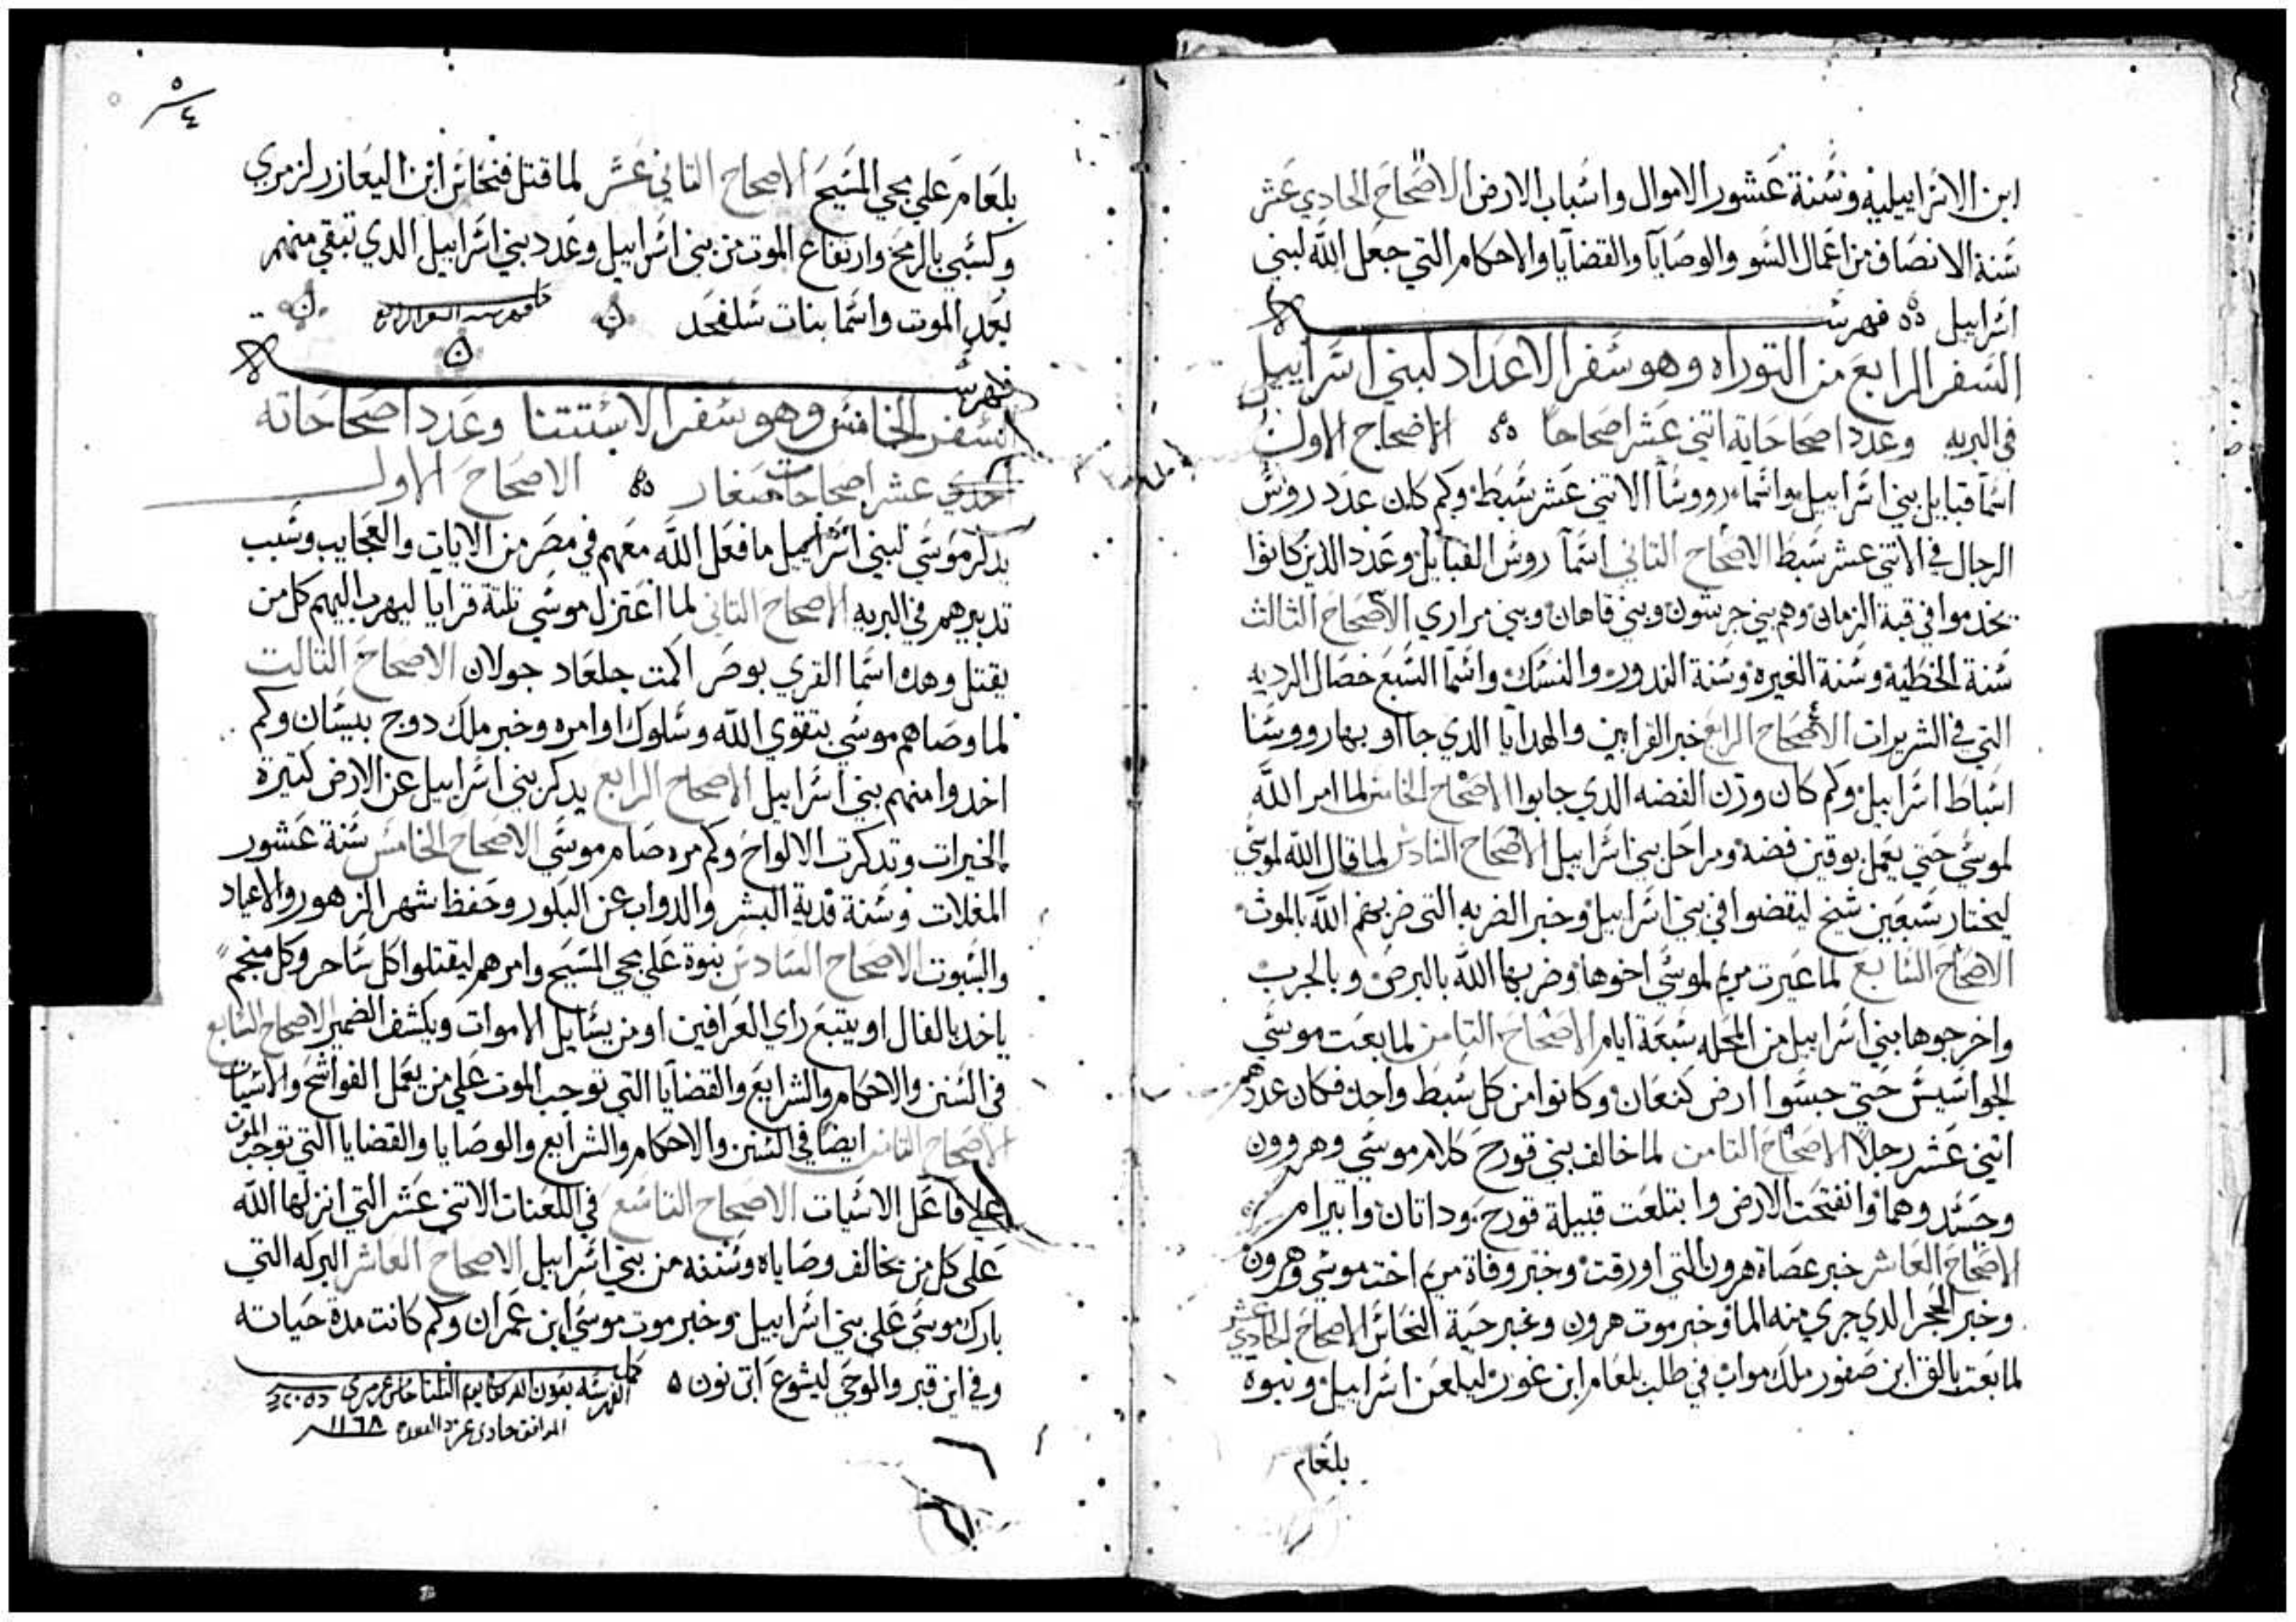 ابن الاسراييليه وسنة عشور الاموال واسباب الارض الاصحاح الحادي عشر
سنة الانصاف من اعمال السو والوصايا والقضايا والاحكام التي جعل الله لبني
اسراييل فهرست
السفر الرابع من التوراه وهو سفر الاعداد لبني اسراييل
في البريه وعدد اصحاحاته اتني عشر اصحاحا الاصحاح الاول
اسما قبايل بني اسراييل واسماء رووسا الاتني عشر سبط وكم كان عدد روس
الرجال في الاتني عشر سبط الاصحاح التاني اسما روس القبايل وعدد الذين كانوا
يخدموا في قبة الزمان وهم بني جرسون وبني قاهان وبني مراري الاصحاح الثالث
سنة الخطيه وسنة الغيره وسنة الندور والنسك واسما السبع خصال الرديه
التي في الشريرات الاصحاح الرابع خبر القرابين والهدايا الدي جااو بها رووسا
اسباط اسراييل وكم كان وزن الفضه الدي جابوا الاصحاح الخامس لما امر الله
لموسي حتي يعمل بوقين فضه ومراحل بني اسراييل الاصحاح السادس لما قال الله لموسي
ليختار سبعين شيخ ليقضوا في بني اسراييل وخبر الضربه التي ضربهم الله بالموت
الاصحاح السابع لما عيرت مريم لموسي اخوها وضربها الله بالبرص وبالجرب
واخرجوها بني اسراييل من المحله سبعة ايام الاصحاح التامن لما بعت موسي
الجواسيس حتي جسوا ارض كنعان وكانوا من كل سبط واحد فكان عددهم
اتني عشر رجلا الاصحاح التامن لما خالف بني قورح كلام موسي وهروون
وحسدوهما وانفتحت الارض وابتلعت قبيلة قورح وداتان وابيرام
الاصحاح العاشر خبر عصاة هرون التي اورقت وخبر وفاة مريم اخت موسي وهرون
وخبر الحجر الدي جري منه الما وخبر موت هرون وخبر حية النحاس الاصحاح الحادي عشر
لما بعت بالق ابن صفور ملك مواب في طلب بلعام ابن غور ليلعن اسراييل ونبوة
بلعام
٥
٤
بلعام علي مجي المسيح الاصحاح التاني عشر لما قتل فنحاس ابن اليعازر لزمري
وكسبي بالرمح وارتفاع الموت من بني اسراييل وعدد بني اسراييل الدي تبقي منهم
بعد الموت واسما بنات سلفحد
فهرست
السفر الخامس وهو سفر الاستتنا وعدد اصحاحاته
احدي عشر اصحاحات صغار الاصحاح الاول
يدكر موسي لبني اسراييل ما فعل الله معهم في مصر من الايات والعجايب وسبب
تدبيرهم في البريه الاصحاح التاني لما اعتزل موسي تلتة قرايا ليهرب اليهم كل من
يقتل وهده اسما القري بوصر اكمت جلعاد جولان الاصحاح التالت
لما وصاهم موسي بتقوي الله وسلوك اوامره وخبر ملك دوج بيسان وكم
اخدوا منهم بني اسراييل الاصحاح الرابع يدكر بني اسراييل عن الارض كتيرة
الخيرات وتدكرت الالواح وكم مره صام موسي الاصحاح الخامس سنة عشور
المغلات وسنة فدية البشر والدواب عن البكور وحفظ شهر الزهور والاعياد
والسبوت الاصحاح السادس نبوة علي مجي المسيح وامرهم ليقتلوا كل ساحر وكل منجم
ياخد بالفال او يتبع راي العرافين او من يسايل الاموات ويكشف الضمير الاصحاح السابع
في السنن والاحكام والشرايع والقضايا التي توجب الموت علي من يعمل الفواحش والاسيات
الاصحاح التامن ايضا في السنن والاحكام والشرايع والوصايا والقضايا التي توجب الموت
علي فاعل الاسيات الاصحاح التاسع في اللعنات الاتني عشر التي انزلها الله
علي كل من يخالف وصاياه وسننه من بني اسراييل الاصحاح العاشر البركه التي
بارك موسي علي بني اسراييل وخبر موت موسي ابن عمران وكم كانت مدة حياته
وفي اين قبر والموحي ليشوع ابن نون
١١٦٨